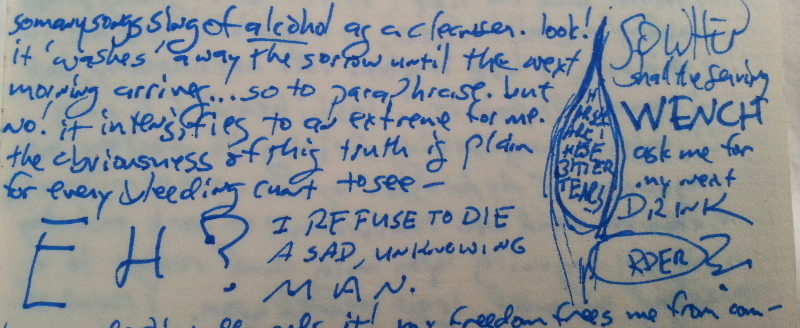 somany songs sing of alcohol as a cleanser. look!
it 'washes' away the sorrow until the next
morning arrives... so to paraphrase. but
no! it intensifies to an extreme for me.
the obviousness of this truth is plain
for every bleeding cunt to see –
EH?
I REFUSE TO DIE
A SAD, UNKNOWING
MAN.
BITTER
TEARS
SO WHEN
shall the serving
WENCH
ask me for
my next
DRINK
RDER?
it! my freedom frees me from com-